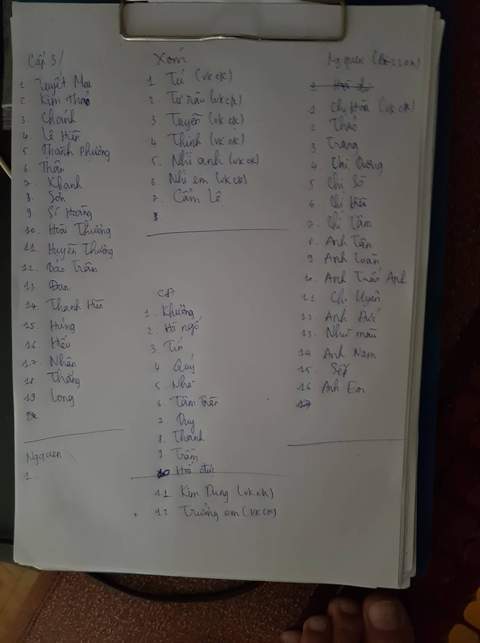 Cấp 3/
1 Tuyết Mai
2 Kim Thoa
3. Chanh
4. Lê Hiền
5 Thanh Phương
6. Thân
7. Khanh
8. Sơn
9 Sĩ Hoàng
10. Hoài Thương
11. Huyền Thương
12. Bảo Trâm
13. Đan
14. Thanh Hiề
15. Hùng
16 Hiếu
17. Nhân
18 Thắng
19 Long
Ng quen
1.
Xóm
1. Tú (vk ck)
2. Tư râu (vk ck)
3. Tuyền (vk ck)
4 Thịnh (vk ck)
5. Nhi anh (vk ck)
6. Nhi em (vk ck)
7. Cẩm Lê
8
CA
1. Khương
2. Hồ ngố
3. Tín
4 Quý
5. Nhê
6 Tâm
7. Duy
8. Thanh
9. Trâm
10 Hoà
11 Kim Dung (vk ck)
12 Trường em (vk ck)
Ng quen
1 Chị Hoa (vk ck)
2 Thảo
3 Trang
4 Dương
5 Chị
6. Chị Hiền
7. Chị Tâm
8. Anh Tân
9 Anh Tuấn
10 Anh Tuấn Anh
11 Chị Uyên
12 Anh Đức
13. Như
14 Anh Nam
15 Sếp
16 Anh Em
17